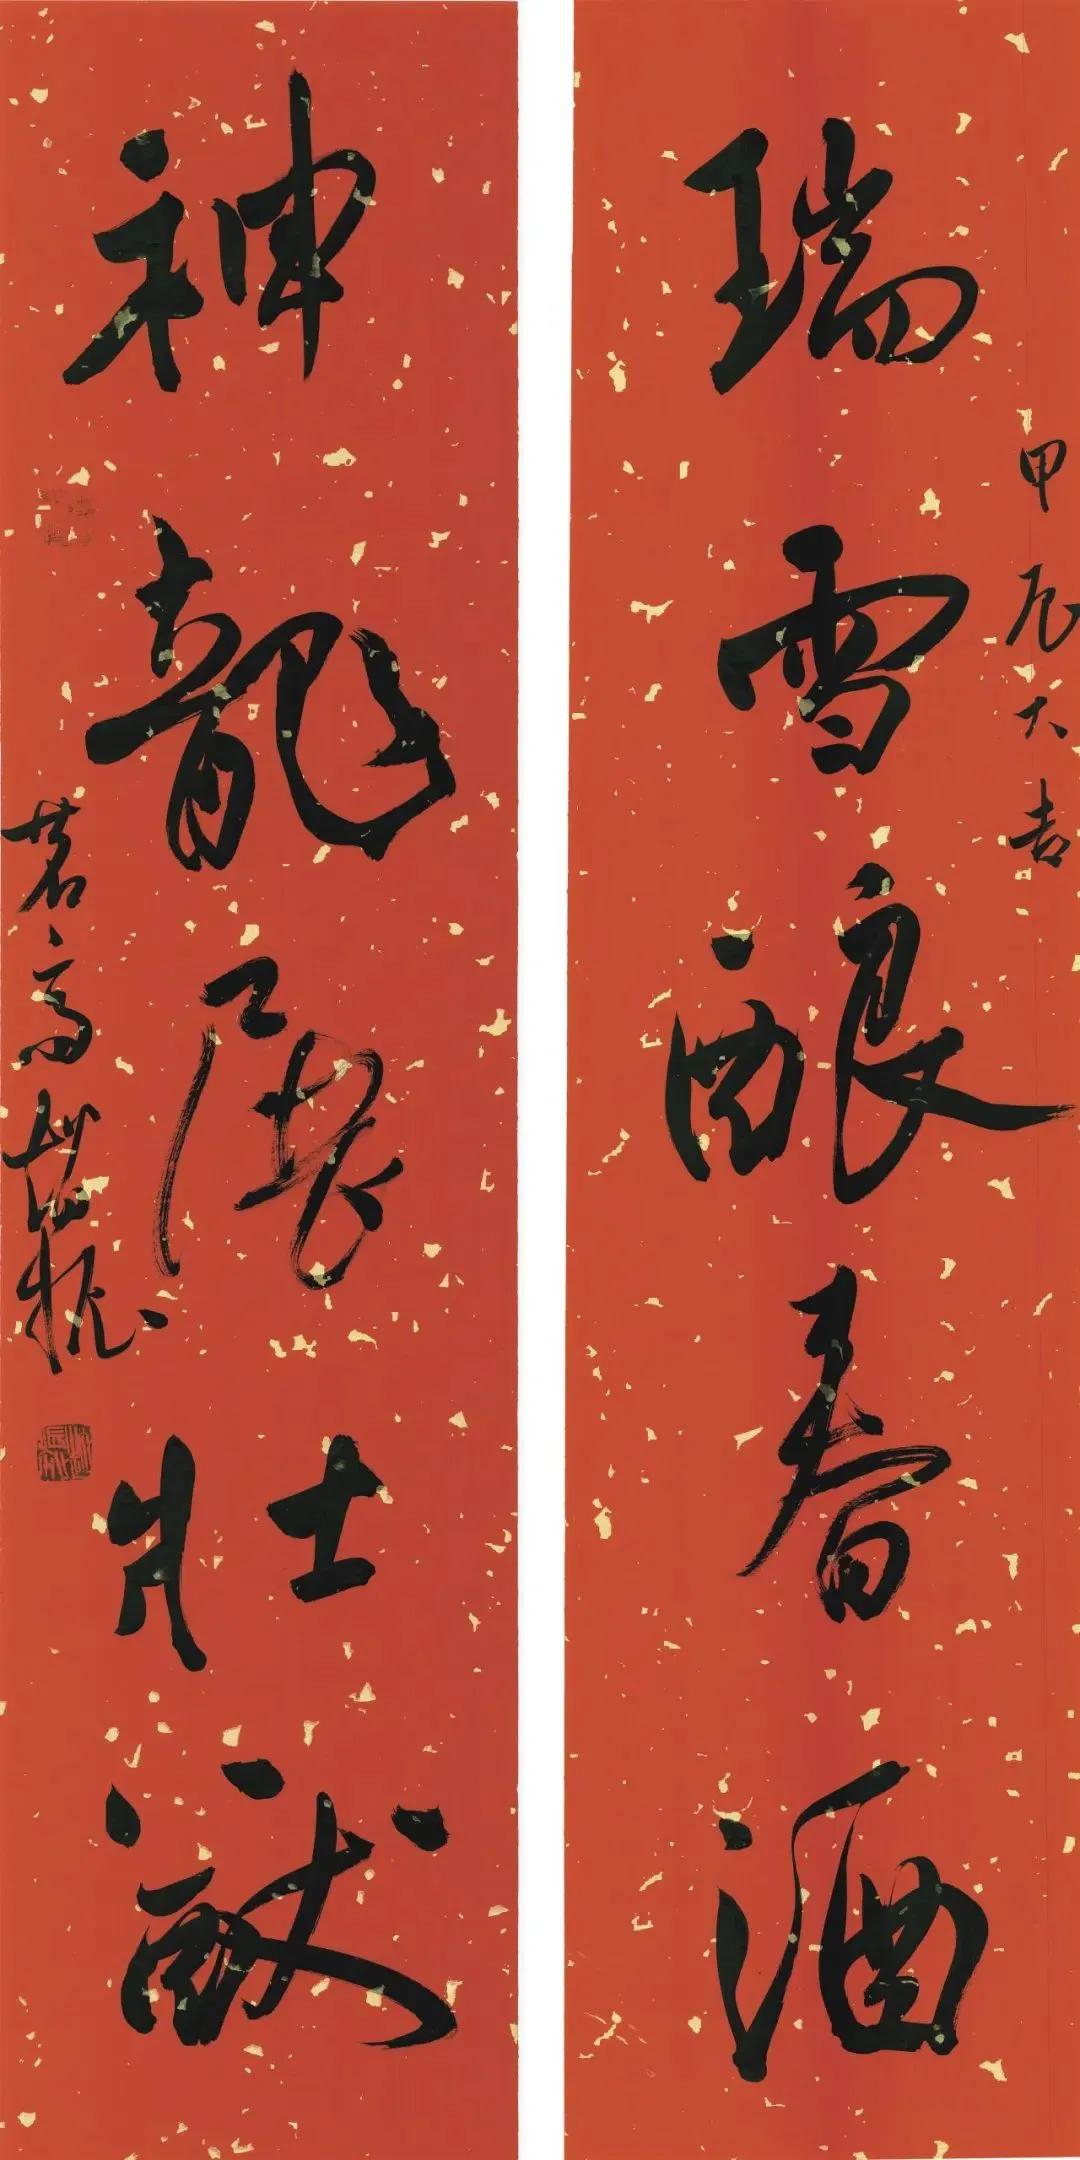 瑞雪酿春酒
甲辰大吉
神龍展壯猷